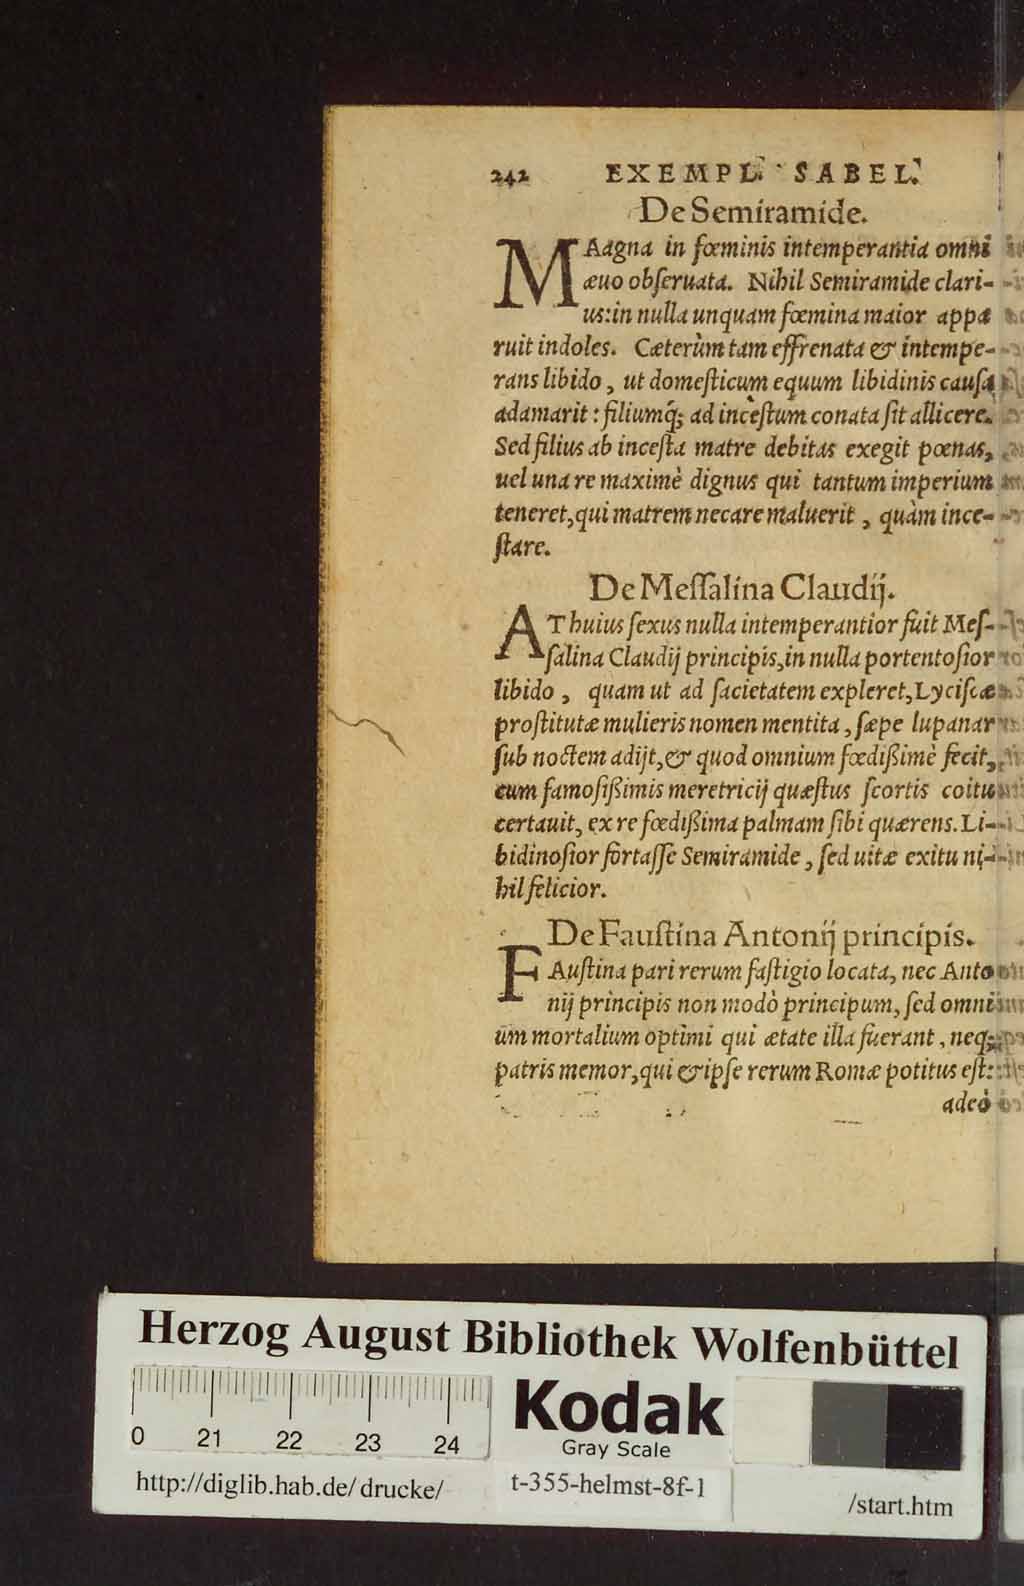 242 EXEMPL. SABEL.
De Semiramide.
MAagna in fœminis intemperantia omni
æuo obſeruata. Nihil Semiramide clari-
us:in nulla unquam fœmina maior appa
ruit indoles. Cæterùm tam effrenata & intempe-
rans libido, ut domeſticum equum libidinis cauſa
adamarit: filiumq́; ad inceſtum conata ſit allicere.
Sed filius ab inceſta matre debitas exegit pœnas,
uel una re maximè dignus qui tantum imperium
teneret,qui matrem necare maluerit, quàm ince-
ſtare.
De Meſſalina Claudij.
AT huius ſexus nulla intemperantior fuit Meſ-
ſalina Claudij principis,in nulla portentoſior
libido, quam ut ad ſacietatem expleret,Lyciſcæ
proſtitutæ mulieris nomen mentita, ſæpe lupanar
ſub noctem adijt,& quod omnium fœdißimè fecit,
cum famoſißimis meretricij quæſtus ſcortis coitu
certauit, ex re fœdißima palmam ſibi quærens. Li-
bidinoſior fortaſſe Semiramide, ſed uitæ exitu ni-
hil felicior.
De Fauſtina Antonij principis.
FAuſtina pari rerum faſtigio locata, nec Anto
nij principis non modò principum, ſed omni
um mortalium optimi qui ætate illa fuerant, neq;
patris memor,qui & ipſe rerum Romæ potitus eſt:
adeò
Herzog August Bibliothek Wolfenbüttel
0 21 22 23 24
Kodak
Gray Scale
http://diglib.hab.de/drucke/
t-355-helmst-8f-1
/start.htm